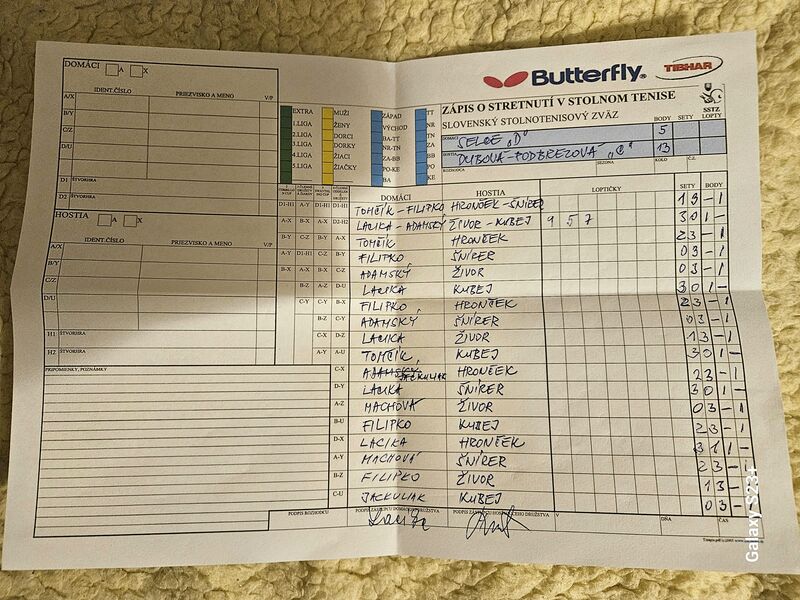 DOMÁCI A X
IDENT.ČÍSLO PRIEZVISKO A MENO V/P
A/X
B/Y
C/Z
D/U
D1 ŠTVORHRA
D2
HOSTIA A X
IDENT.ČÍSLO PRIEZVISKO A MENO V/P
A/X
B/Y
C/Z
D/U
H1 ŠTVORHRA
H2
PRIPOMIENKY, POZNÁMKY
EXTRA
1.LIGA
2.LIGA
3.LIGA
4.LIGA
5.LIGA
MUŽI
ŽENY
DORCI
DORKY
ŽIACI
ŽIAČKY
ZÁPAD
VÝCHOD
BA-TT
NR-TN
ZA-BB
PO-KE
BA
TT
NR
TN
ZA
BB
PO
KE
Butterfly TIBHAR
ZÁPIS O STRETNUTÍ V STOLNOM TENISE
SLOVENSKÝ STOLNOTENISOVÝ ZVÄZ SSTZ
BODY SETY LOPTY
DOMÁCI SELCE "D" 5
HOSTIA DUBOVÁ-PODBREZOVÁ "C" 13
ROZHODCA SEZONA KOLO Č.Z.
DOMÁCI HOSTIA LOPTIČKY SETY BODY
D1-H1 A-Y D1-H1 D1-H1 TOMČÍK - FILIPKO HRONČEK - ŠNÍRER 1 3 - 1
A-X B-X A-X D2-H2 LACIKA - ADAMSKÝ ŽIVOR - KUBEJ 9 5 7 3 0 1 -
B-Y C-Z B-Y A-X TOMČÍK HRONČEK 2 3 - 1
FILIPKO ŠNÍRER 0 3 - 1
ADAMSKÝ ŽIVOR 0 3 - 1
B-Z A-Z D-U LACIKA KUBEJ 3 0 1 -
C-Y C-Y B-X FILIPKO HRONČEK 2 3 - 1
B-Z C-Y ADAMSKÝ ŠNÍRER 0 3 - 1
C-X D-Z LACIKA ŽIVOR 1 3 - 1
A-Y A-U TOMČÍK KUBEJ 3 0 1 -
C-X JACKULIAK HRONČEK 2 3 - 1
D-Y LACIKA ŠNÍRER 3 0 1 -
A-Z MACHOVÁ ŽIVOR 0 3 - 1
B-U FILIPKO KUBEJ 2 3 - 1
D-X LACIKA HRONČEK 3 1 1 -
A-Y MACHOVÁ ŠNÍRER 2 3 - 1
B-Z FILIPKO ŽIVOR 1 3 - 1
C-U JACKULIAK KUBEJ 0 3 - 1
PODPIS ROZHODCU V DŇA ČAS
Galaxy S23